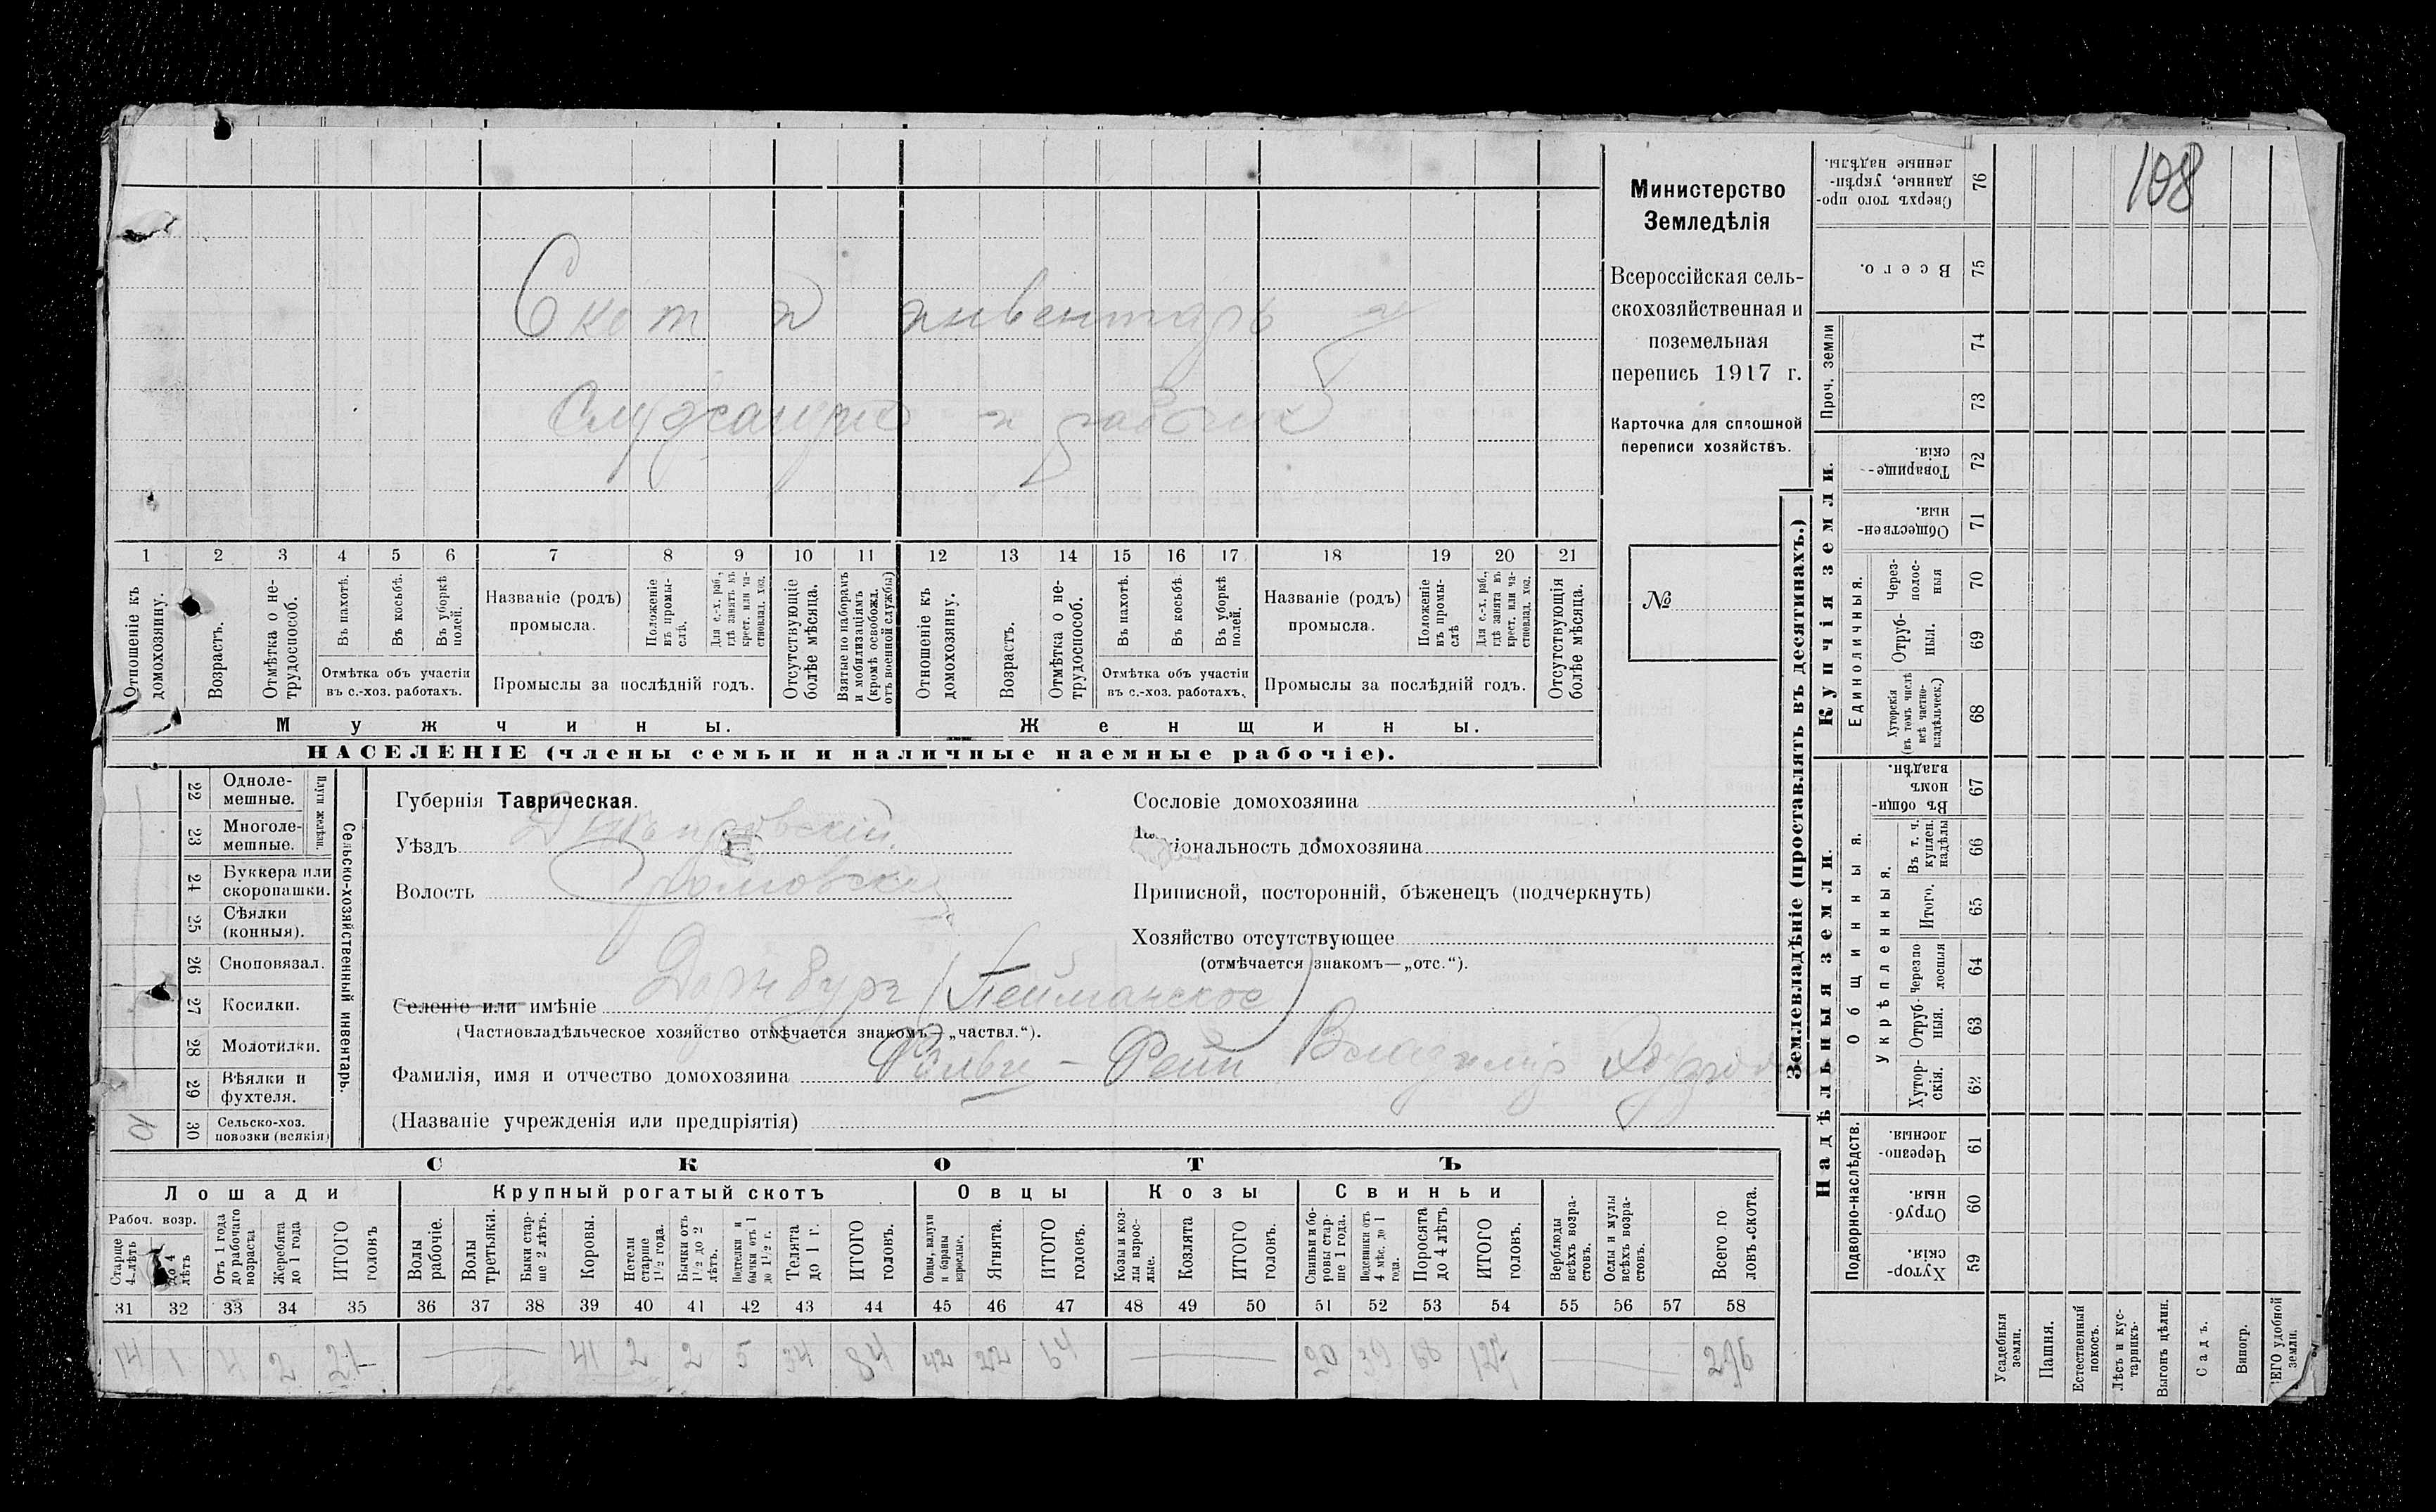 108
Скот и инвентарь
Служащих и рабочих
Министерство
Земледѣлія
Всероссійская сель-
скохозяйственная и
поземельная
перепись 1917 г.
Карточка для сплошной
переписи хозяйствъ.
№
1 2 3 4 5 6 7 8 9 10 11 12 13 14 15 16 17 18 19 20 21
Отношеніе къ домохозяину.
Возрастъ.
Отмѣтка о не-трудоспособ.
Въ пахотѣ.
Въ косьбѣ.
Въ уборкѣ полей.
Отмѣтка объ участіи
въ с.-хоз. работахъ.
Названіе (родъ)
промысла.
Положеніе въ промы-слѣ.
Для с.-х. раб., гдѣ занятъ въ крест. или ча-стновлад. хоз.
Промыслы за послѣдній годъ.
Отсутствующіе болѣе мѣсяца.
Взятые по наборамъ и мобилизаціямъ (кромѣ освобожд. отъ военной службы)
Отношеніе къ домохозяину.
Возрастъ.
Отмѣтка о не-трудоспособ.
Въ пахотѣ.
Въ косьбѣ.
Въ уборкѣ полей.
Отмѣтка объ участіи
въ с.-хоз. работахъ.
Названіе (родъ)
промысла.
Положеніе въ промы-слѣ
Для с.-х. раб., гдѣ занята въ крест. или ча-стновлад. хоз.
Промыслы за послѣдній годъ.
Отсутствующія болѣе мѣсяца.
Мужчины.
Женщины.
НАСЕЛЕНІЕ (члены семьи и наличные наемные рабочіе).
22 Однолемешные.
23 Многолемешные.
Плуги желѣзн.
24 Буккера или скоропашки.
25 Сѣялки (конныя).
26 Сноповязал.
27 Косилки.
28 Молотилки.
29 Вѣялки и фухтеля.
30 Сельско-хоз. повозки (всякія)
10
Сельско-хозяйственный инвентарь.
Губернія Таврическая.
Уѣздъ Днѣпровскій
Волость Громовск
Селеніе или имѣніе Дорнбург (Тейманское)
(Частновладѣльческое хозяйство отмѣчается знакомъ—„частвл.“).
Фамилія, имя и отчество домохозяина Фальц-Фейн Владимір
(Названіе учрежденія или предпріятія)
Сословіе домохозяина
ціональность домохозяина
Приписной, посторонній, бѣженецъ (подчеркнуть)
Хозяйство отсутствующее
(отмѣчается знакомъ—„отс.“).
СКОТЪ
Лошади
Крупный рогатый скотъ
Овцы
Козы
Свиньи
Рабоч. возр.
Старше 4-лѣтъ
до 4 лѣтъ
Отъ 1 года до рабочаго возраста
Жеребята до 1 года
ИТОГО головъ
Волы рабочіе.
Волы третьяки.
Быки стар-ше 2 лѣтъ.
Коровы.
Нетели старше 1½ года.
Бычки отъ 1½ до 2 лѣтъ.
Подтелки и бычки отъ 1 до 1½ г.
Телята до 1 г.
ИТОГО головъ.
Овцы, валухи и бараны взрослые.
Ягнята.
ИТОГО головъ.
Козы и коз-лы взрос-лые.
Козлята
ИТОГО головъ.
Свиньи и бо-ровы стар-ше 1 года.
Подсвинки отъ 4 мѣс. до 1 года.
Поросята до 4 лѣтъ
ИТОГО головъ.
Верблюды всѣхъ возра-стовъ.
Ослы и мулы всѣхъ возра-стовъ.
Всего головъ скота.
31 32 33 34 35 36 37 38 39 40 41 42 43 44 45 46 47 48 49 50 51 52 53 54 55 56 57 58
14 1 4 2 21 — 41 2 2 5 34 84 42 22 64 — 127 — 296
Землевладѣніе (проставлять въ десятинахъ.)
Надѣльныя земли.
Купчія земли.
Проч. земли
Подворно-наслѣдств.
Общинныя.
Укрѣпленныя.
Единоличныя.
Сверхъ того про-данные, укрѣп-ленные надѣлы. 76
Всего. 75
74
73
Товарище-скія. 72
Обществен-ныя. 71
Через-полос-ныя 70
Отруб-ныя. 69
Хуторскія (въ томъ числѣ всѣ частно-владѣльческ.) 68
Въ общи-номъ владѣн. 67
Въ т. ч. куплен. надѣлы 66
Итого. 65
Черезпо лосныя 64
Отруб-ныя. 63
Хутор-скія. 62
Черезпо-лосныя. 61
Отруб-ныя. 60
Хутор-скія. 59
Усадебныя земли.
Пашня.
Естественный покосъ.
Лѣсъ и кус-тарникъ.
Выгонъ цѣлин.
Садъ.
Виногр.
ЕГО удобной земли.